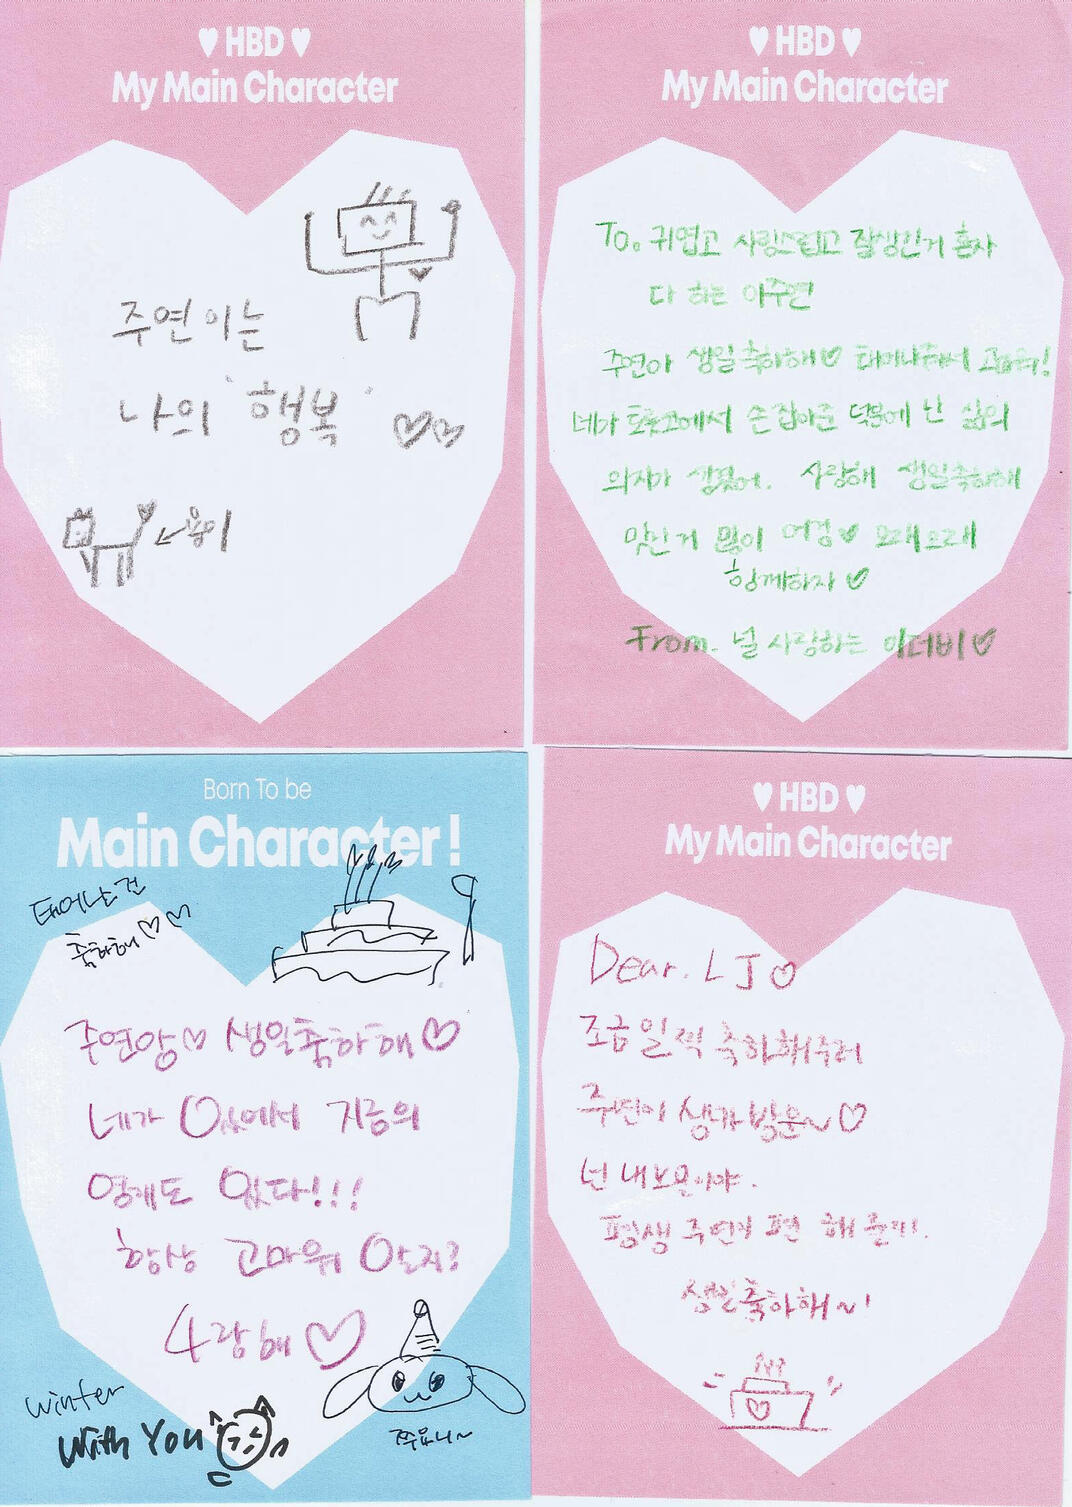 ♥ HBD ♥
My Main Character
주연이는
나의 '행복' ♡♡
←용이
♥ HBD ♥
My Main Character
To. 귀엽고 사랑스럽고 잘생긴거 혼자
다 하는 이주연
주연아 생일축하해♡ 태어나줘서 고마워!
네가 도롯코에서 손 잡아준 덕분에 난 삶의
의지가 생겼어. 사랑해 생일축하해
맛난거 많이 먹엉♡ 오래오래
함께하자♡
From. 널 사랑하는 이더비♡
Born To be
Main Character!
태어난건
축하해♡♡
주연앙♡ 생일축하해♡
네가 있에서 지금의
영케도 있다!!!
항상 고마워 알지?
4랑해♡
Winter
With You
쭈요니~
♥ HBD ♥
My Main Character
Dear. LJ♡
조금 일찍 축하해주러
주연이 생카 밧운~♡
넌 내 보문이야.
평생 주연이 편 해줄게!
생일축하해~!